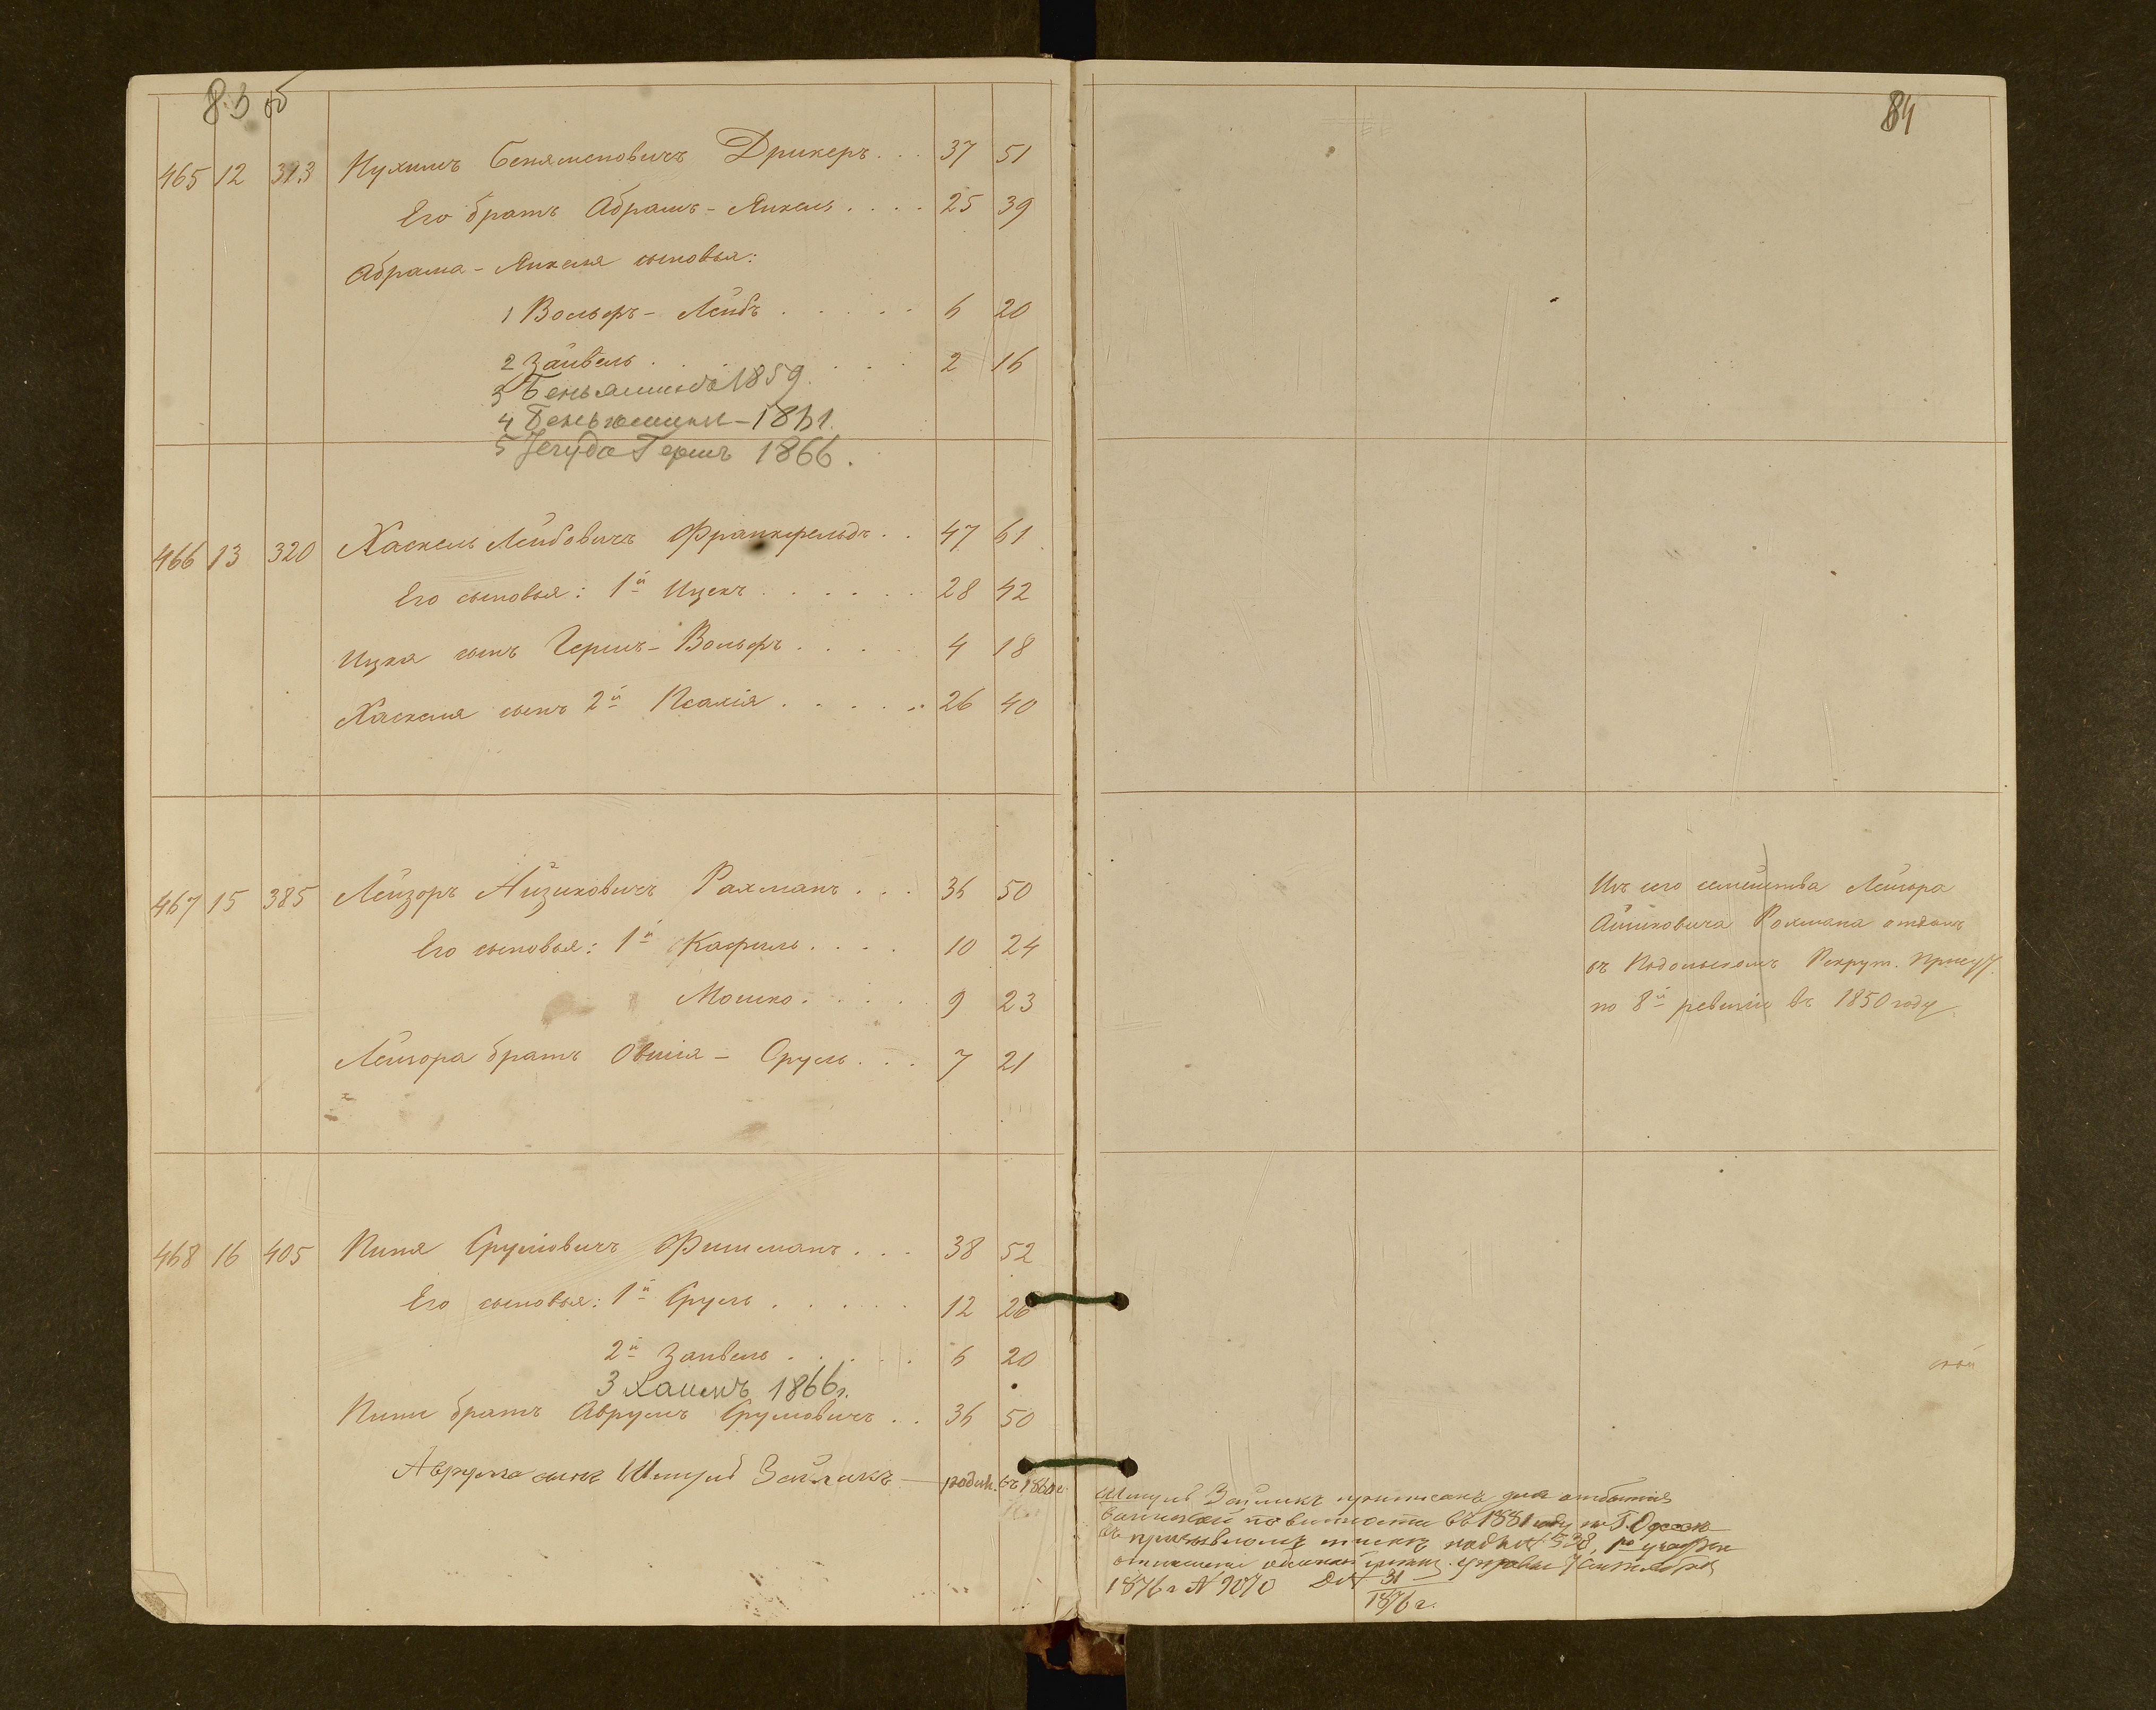 83 об
84
465 12 313 Нухимъ Беняменовичъ Дрикеръ . . . 37 51
Его братъ Абрамъ - Янкель . . . . 25 39
Абрама - Янкеля сыновья:
1 Вольфъ - Лейбъ . . . . . 6 20
2 Зайвель . . . . . 2 16
3 1859
4 - 1861.
5 Іегуда Гершъ 1866.
466 13 320 Хаскель Лейбовичъ Франкфельдъ . . 47 61
Его сыновья: 1й Ицекъ . . . . . . 28 42
Ицка сынъ Гершъ - Вольфъ . . . . 4 18
Хаскеля сынъ 2й Псахія . . . . . . 26 40
467 15 385 Лейзоръ Айзиковичъ Рахманъ . . . 36 50
Его сыновья: 1й Кофиль . . . . 10 24
Мошко . . . . . 9 23
Лейзора братъ Овшія - Сруль . . . 7 21
Изъ сего семейства Лейзора
Айзиковича Рохмана отданъ
въ Подольскомъ Рекрут. Присут.
по 8й ревизіи въ 1850 году.
468 16 405 Пиня Срулiовичъ Фишманъ . . . 38 52
Его сыновья: 1й Сруль . . . . . . 12 26
2й Зайвель . . . . . . 6 20
3 Хаимъ 1866г.
Пини братъ Аврумъ Срулiовичъ . . 36 50
Аврума сынъ Шмуль Зайликъ — родил. въ 1860 г
Шмуль Зайликъ приписанъ для отбытія
воинской повинности въ 1881 году по Г. Одессѣ
въ призывномъ спискѣ подъ № 538, 1го участка
управы 7 Сентября
1876 г № 9070 31
1876 г.